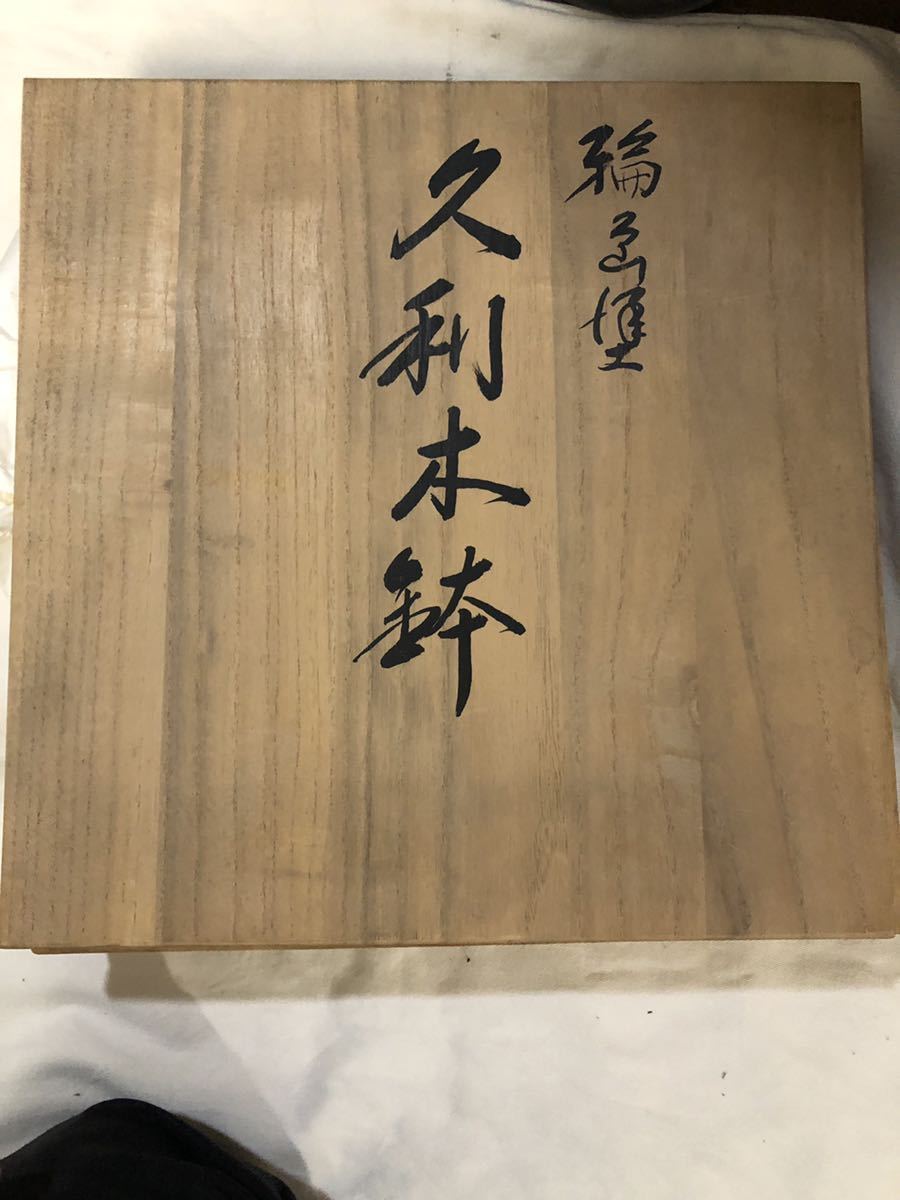 輪島塗
久利木鉢